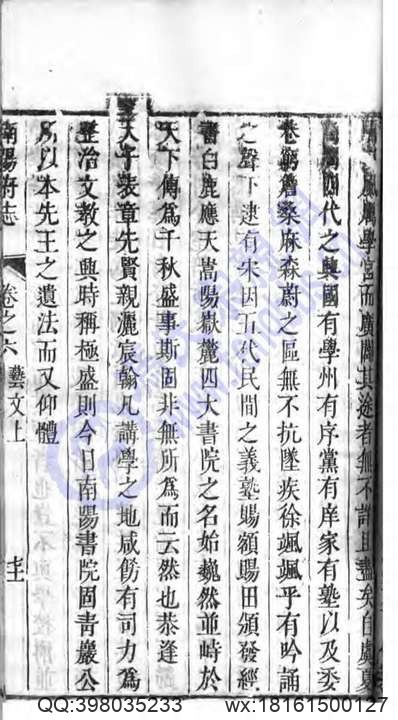 風厲學宮而廣闢其途者無不詳且盡矣自虞夏
商周四代之興國有學州有序黨有庠家有塾以及委
巷窮簷桑麻森蔚之區無不抗墜疾徐颯颯乎有吟誦
之聲下逮有宋因五代民間之義塾賜額賜田頒發經
書白鹿應天嵩陽嶽麓四大書院之名始巍然並峙於
天下傳為千秋盛事斯固非無所為而云然也恭逢
聖天子表章先賢親灑宸翰凡講學之地咸飭有司力為
整治文教之興時稱極盛則今日南陽書院固青巖公
所以本先王之遺法而又仰體
南陽府志 卷之六 藝文上
QQ:398035233 wx:18161500127